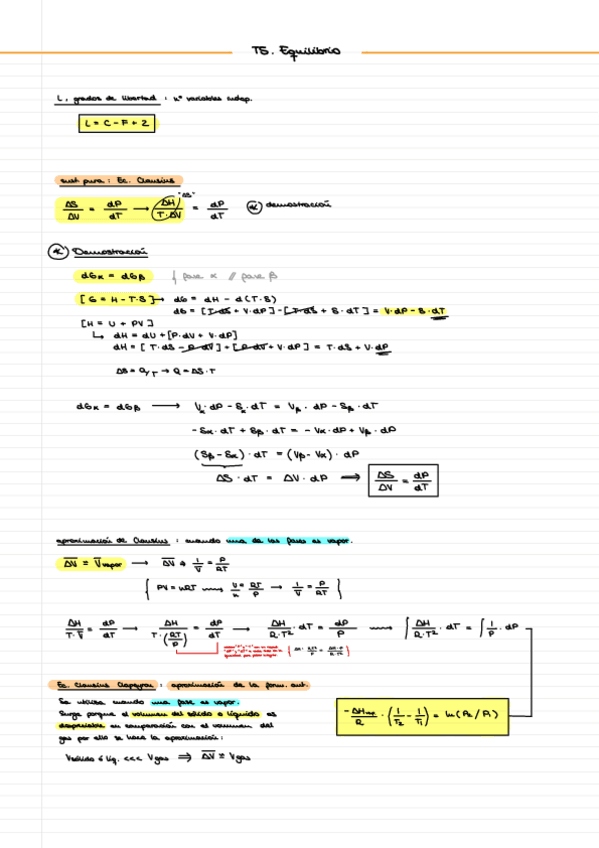 T5. Equilibrio
L, grados de libertad : nº variables indep.
L = C - F + 2
sust pura : Ec. Clausius
ΔS/ΔV = dP/dT → ΔH/(T·ΔV) = dP/dT "ΔS" (*) demostración
(*) Demostración
dGα = dGβ { fase α // fase β
[G = H - T·S] → dG = dH - d(T·S)
dG = [T·dS + V·dP] - [T·dS + S·dT] = V·dP - S·dT
[H = U + PV]
↳ dH = dU + [P·dV + V·dP]
dH = [T·dS - P·dV] + [P·dV + V·dP] = T·dS + V·dP
ΔS = Q/T → Q = ΔS·T
dGα = dGβ → Vα·dP - Sα·dT = Vβ·dP - Sβ·dT
-Sα·dT + Sβ·dT = -Vα·dP + Vβ·dP
(Sβ - Sα)·dT = (Vβ - Vα)·dP
ΔS·dT = ΔV·dP ⟹ ΔS/ΔV = dP/dT
aproximación de Clausius : cuando una de las fases es vapor.
ΔV ≡ Vvapor → ΔV ≈ 1/V = P/RT
{ PV = nRT → V/n = RT/P → 1/V = P/RT }
ΔH/(T·V) = dP/dT → ΔH/(T·(RT/P)) = dP/dT → ΔH/(R·T²)·dT = dP/P → ∫ ΔH/(R·T²)·dT = ∫ 1/P·dP
Ec. Clausius Clapeyron : aproximación de la form. ant.
Se utiliza cuando una fase es vapor.
Surge porque el volumen del sólido o líquido es
despreciable en comparación con el volumen del
gas por ello se hace la aproximación:
Vsólido ó líq. <<< Vgas ⟹ ΔV ≡ Vgas
-ΔHvap/R · (1/T2 - 1/T1) = ln(P2/P1)